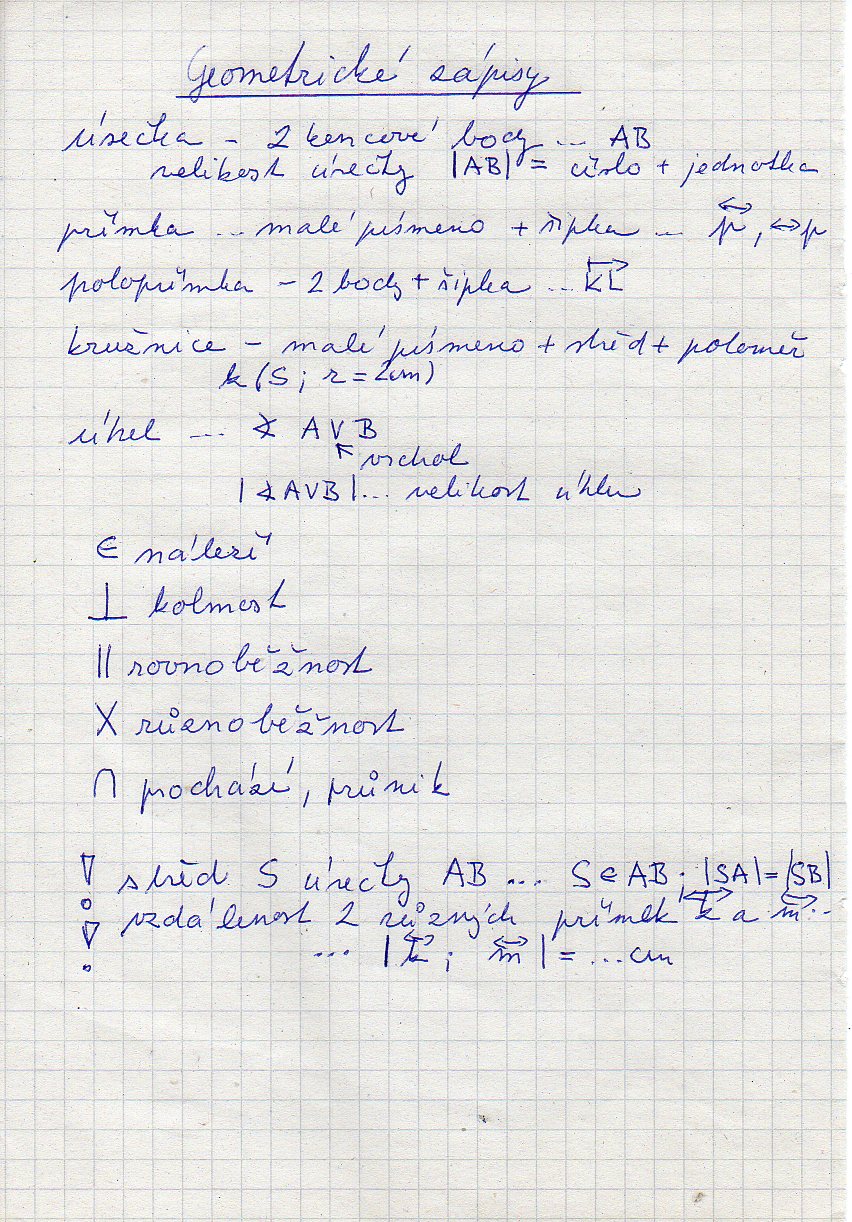 Geometrické zápisy
úsečka - 2 koncové body ... AB
velikost úsečky |AB| = číslo + jednotka
přímka ... malé písmeno + šipka ... p↔, ↔p
polopřímka - 2 body + šipka ... ↦KL
kružnice - malé písmeno + střed + poloměr
k (S; r = 2cm)
úhel ... ∢ AVB
↖ vrchol
|∢AVB| ... velikost úhlu
∈ náleží
⊥ kolmost
|| rovnoběžnost
X různoběžnost
∩ prochází, průnik
! střed S úsečky AB ... S ∈ AB; |SA| = |SB|
! vzdálenost 2 různých přímek ↔k a ↔m ..
... |↔k; ↔m| = ... cm